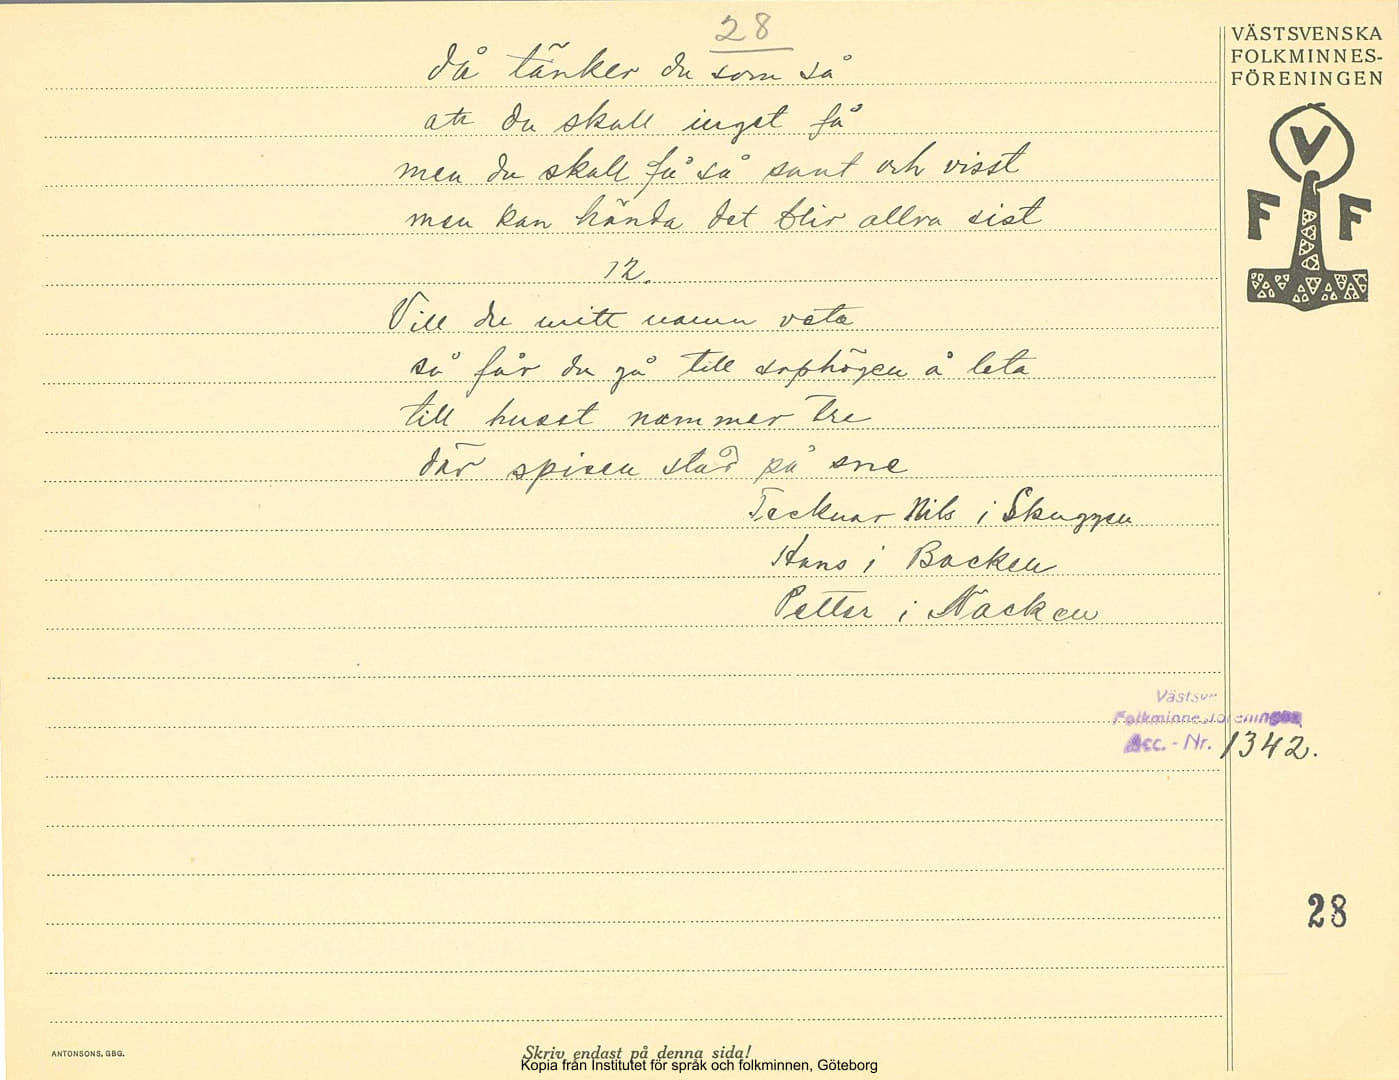 28
då tänker du som så
att du skall inget få
men du skall få så sant och visst
men kan hända det blir allra sist
12.
Vill du mitt namn veta
så får du gå till sophögen å leta
till huset nommer tre
där spisen står på sne
Tecknar Nils i Skuggen
Hans i Backen
Petter i Nacken
VÄSTSVENSKA
FOLKMINNES-
FÖRENINGEN
V
F F
Folkminnesföreningen
Acc. - Nr. 1342.
28
ANTONSONS, GBG.
Skriv endast på denna sida!
Kopia från Institutet för språk och folkminnen, Göteborg